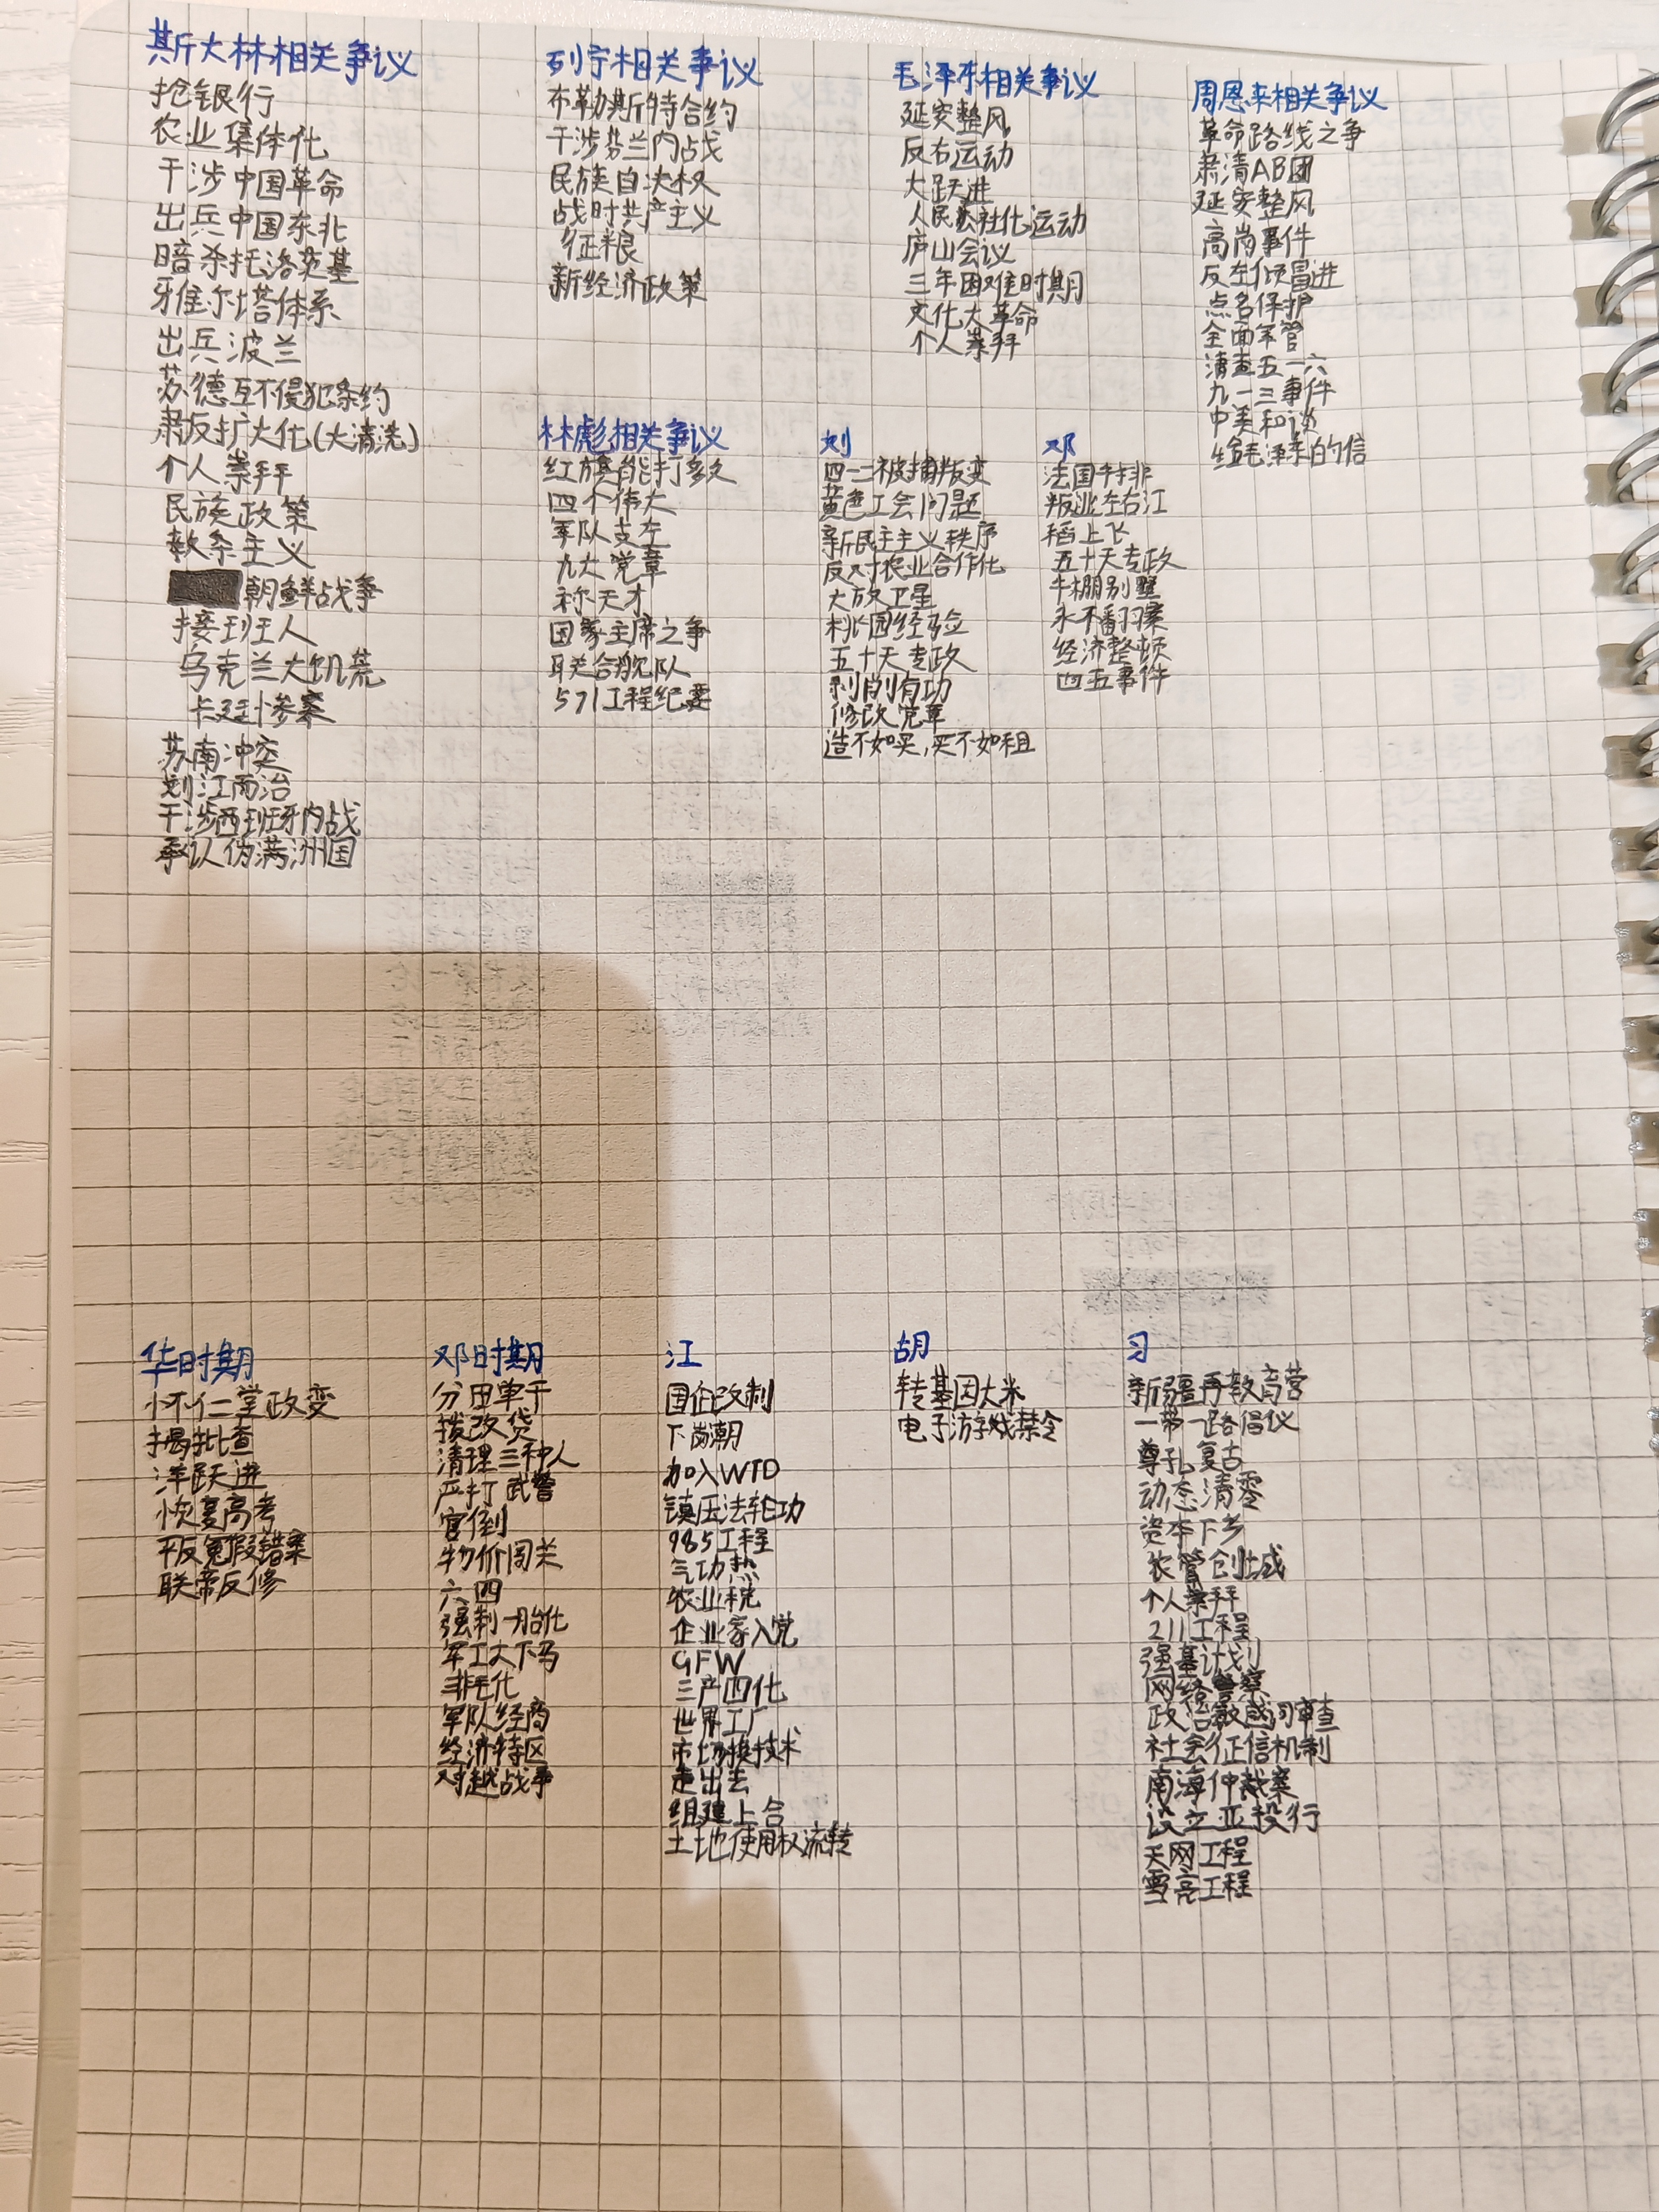 斯大林相关争议
抢银行
农业集体化
干涉中国革命
出兵中国东北
暗杀托洛茨基
雅尔塔体系
出兵波兰
苏德互不侵犯条约
肃反扩大化(大清洗)
个人崇拜
民族政策
教条主义
朝鲜战争
接班人
乌克兰大饥荒
卡廷惨案
苏南冲突
划江而治
干涉西班牙内战
承认伪满洲国
列宁相关争议
布勒斯特合约
干涉芬兰内战
民族自决权
战时共产主义
征粮
新经济政策
毛泽东相关争议
延安整风
反右运动
大跃进
人民公社化运动
庐山会议
三年困难时期
文化大革命
个人崇拜
周恩来相关争议
革命路线之争
肃清AB团
延安整风
高岗事件
反左倾冒进
点名保护
全面军管
清查五一六
九一三事件
中美和谈
给毛泽东的信
林彪相关争议
红旗能打多久
四个伟大
军队支左
九大党章
称天才
国家主席之争
联合舰队
571工程纪要
刘
四一二被捕叛变
黄色工会问题
新民主主义秩序
反对农业合作化
大放卫星
桃园经验
五十天专政
剥削有功
修改党章
造不如买,买不如租
邓
法国牛排
叛逃左右江
稻上飞
五十天专政
牛棚别墅
永不翻案
经济整顿
四五事件
华时期
怀仁堂政变
揭批查
洋跃进
恢复高考
平反冤假错案
联帝反修
邓时期
分田单干
拨改贷
清理三种人
严打 武警
官倒
物价闯关
六四
强制一胎化
军工大下马
非毛化
军队经商
经济特区
对越战争
江
国企改制
下岗潮
加入WTO
镇压法轮功
985工程
气功热
农业税
企业家入党
GFW
三产四化
世界工厂
市场换技术
走出去
组建上合
土地使用权流转
胡
转基因大米
电子游戏禁令
习
新疆再教育营
一带一路倡议
尊孔复古
动态清零
资本下乡
农管创城
个人崇拜
211工程
强基计划
网络警察
政治敏感词审查
社会征信机制
南海仲裁案
设立亚投行
天网工程
雪亮工程